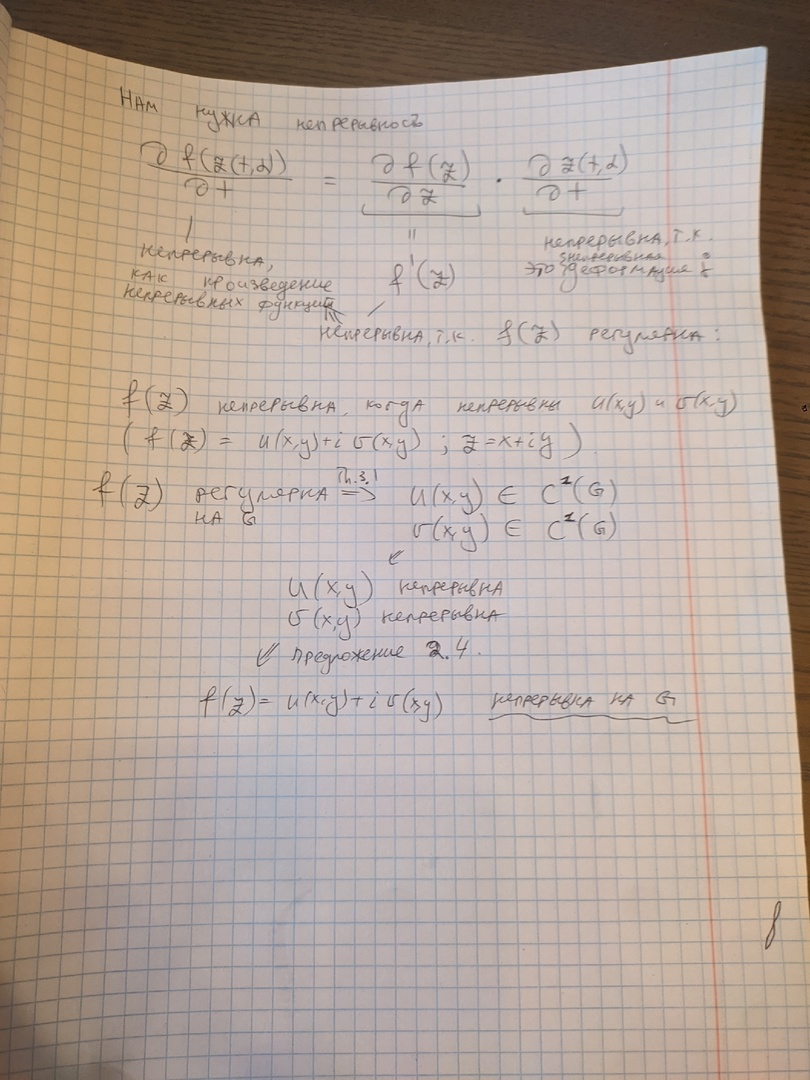 Нам нужна непрерывность
∂ f(z(t,α)) / ∂t = ∂ f(z) / ∂z · ∂ z(t,α) / ∂t
непрерывна,
как произведение
непрерывных функций
=
f'(z)
непрерывна, т.к.
это непрерывная деформация
непрерывна, т.к. f(z) регулярна:
f(z) непрерывна, когда непрерывны u(x,y) и v(x,y)
( f(z) = u(x,y)+i v(x,y) ; z=x+iy )
f(z) регулярна на G ⇒ Th.3.1 u(x,y) ∈ C¹(G)
v(x,y) ∈ C¹(G)
u(x,y) непрерывна
v(x,y) непрерывна
⇙ предложение 2.4.
f(z)= u(x,y)+i v(x,y) непрерывна на G